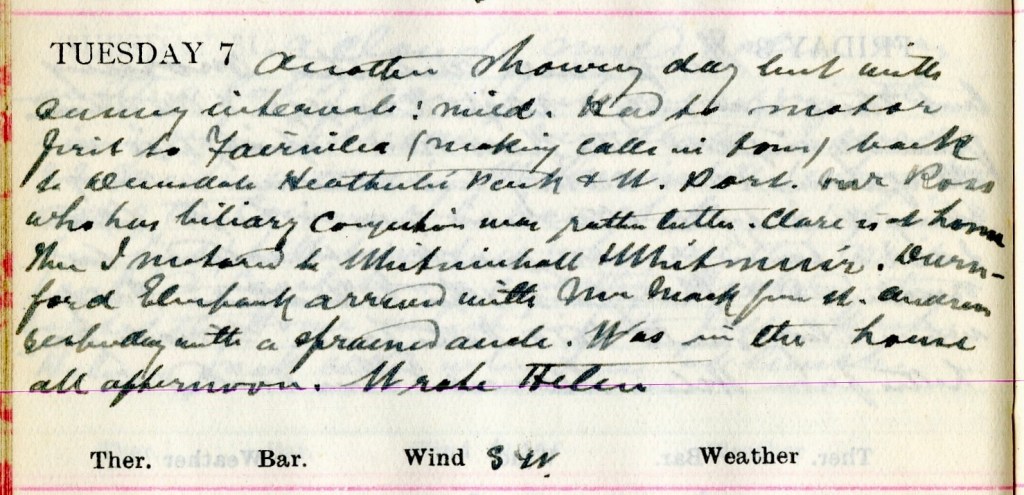 TUESDAY 7 Another Showery day but with
sunny intervals: mild. Had to motor
first to Fairnilea (making calls in town) back
to Heatherlie Park & W. Port. Mr Ross
who has biliary Congestion was rather better. Clare is at home
Then I motored to Whitmuirhall & Whitmuir. Durn-
ford Elibank arrived with Mrs Mack from St. Andrews
yesterday with a sprained ancle. Was in the house
all afternoon. Wrote Helen
Ther. Bar. Wind SW. Weather